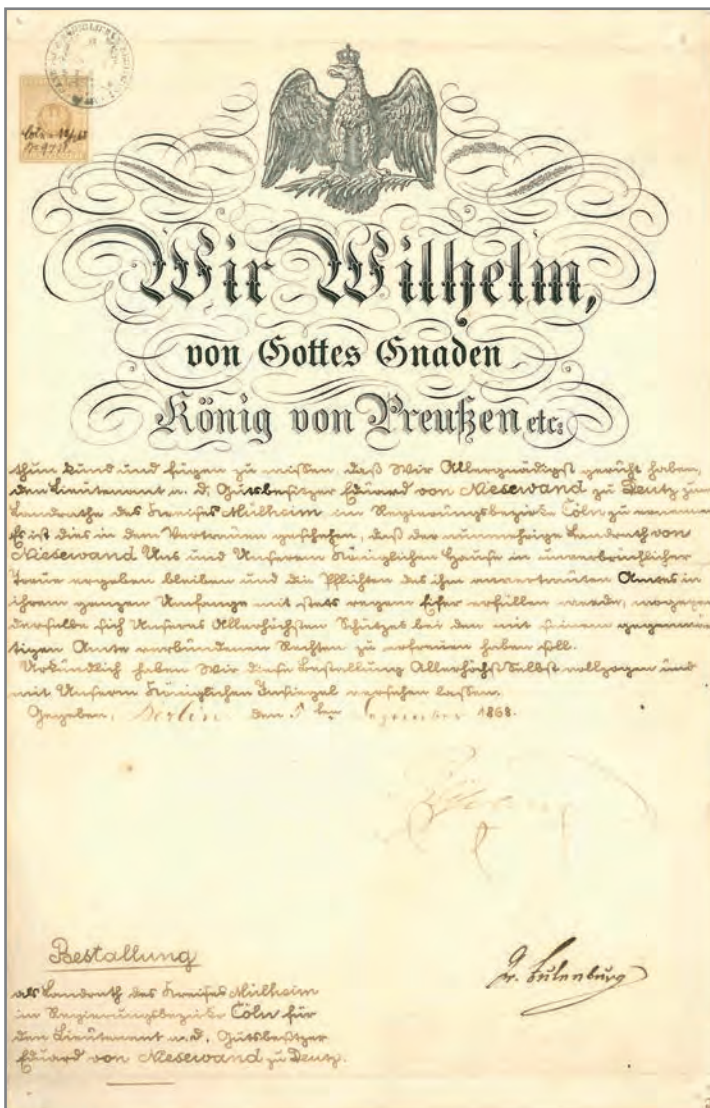 Wir Wilhelm,
von Gottes Gnaden
König von Preußen etc:
thun kund und fügen zu wissen, daß Wir Allergnädigst geruht haben,
den Lieutenant a. D. Gutsbesitzer Eduard von Niesewand zu Deutz zum
Landrathe des Kreises Mülheim im Regierungsbezirke Cöln zu ernennen.
Es ist dies in dem Vertrauen geschehen, daß der nunmehrige Landrath von
Niesewand Uns und Unserem Königlichen Hause in unverbrüchlicher
Treue ergeben bleiben und die Pflichten des ihm anvertrauten Amtes in
ihrem ganzen Umfange mit stets regem Eifer erfüllen werde, wogegen
derselbe sich Unseres Allerhöchsten Schutzes bei den mit seinem gegenwär
tigen Amte verbundenen Rechten zu erfreuen haben soll.
Urkundlich haben Wir diese Bestallung Allerhöchst Selbst vollzogen und
mit Unserm Königlichen Insiegel versehen lassen.
Gegeben, Berlin den 1868.
Bestallung
als Landrath des Kreises Mülheim
im Regierungsbezirke Cöln für
den Lieutenant a. D. Gutsbesitzer
Eduard von Niesewand zu Deutz.
Gr. Eulenburg